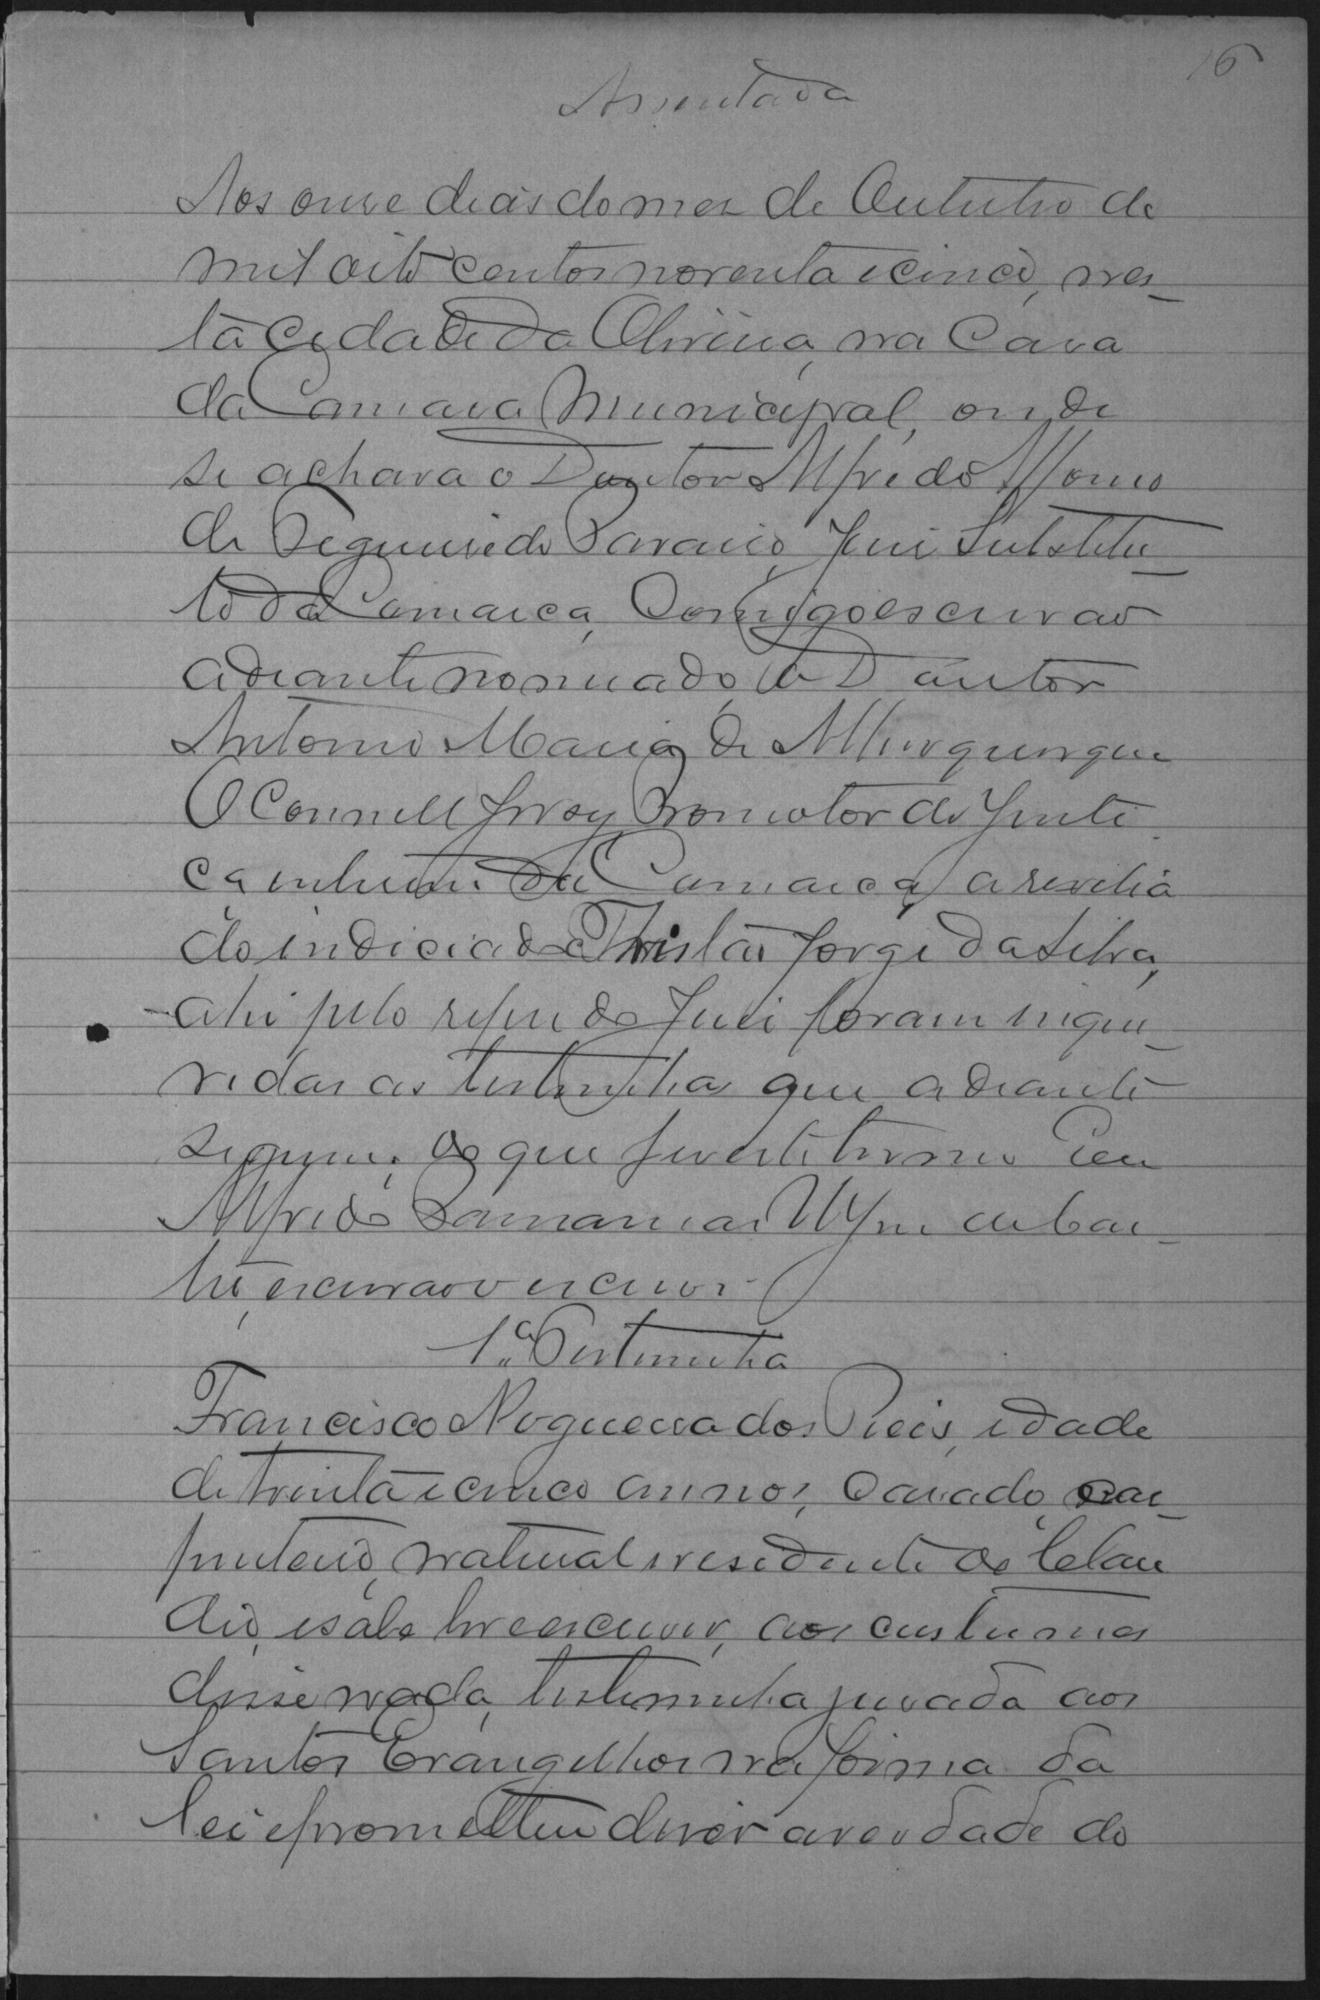 16
Assentada
Aos onze dias do mez de Outubro de
mil oito centos noventa e cinco, nes-
ta cidade da Oliveira, na Casa
da Camara Municipal, onde
se achava o Doutor Alfredo Affonso
de Figueiredo Paraiso, Juiz Substitu-
to da Comarca, Comigo escrivão
adiante nomeado, o Doutor
Antonio Maria de Albuquerque
O Connell Jersey Promotor de Justi
ça da Comarca, a revelia
do indiciado Tristão Jorge da Silva,
ahi pelo referido Juiz foram inque-
ridas as testimunhas que adiante
seguem; do que fiz este termo Eu
Alfredo
escrivão o escrevi.
1.ª Testimunha
Francisco Nogueira dos Reis, idade
de trinta e cinco annos, Casado, car-
pinteiro, natural e residente do Clau
dio, e sabe ler e escrever, aos custumes
disse nada, testimunha jurada aos
Santos Evangelhos na forma da
lei e prometteu diser a verdade do